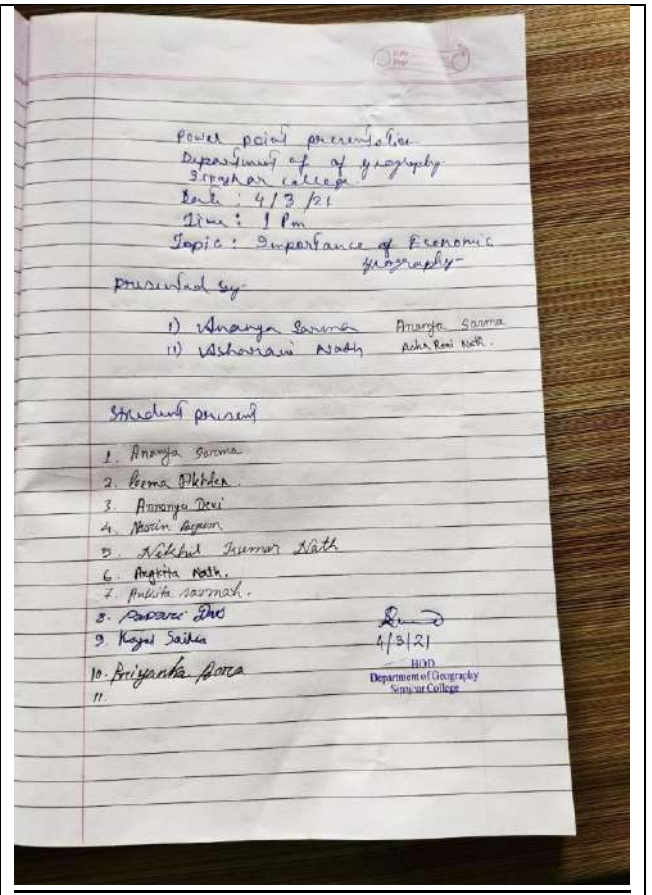 Power point presentation
Department of of geography
Sipajhar college.
Date : 4/3/21
Time : 1 Pm
Topic : Importance of Economic
geography
presented by
1) Ananya Sarma Ananya Sarma
11) Asharani Nath Asha Rani Nath.
Student present
1. Ananya Sarma
2. Akhter.
3. Annanya Devi
4. Begum
5. Kumar Nath
6. Angkita Nath.
7. Ankita sarmah.
8. Das
9. Saikia
10. Priyanka Bora
11.
4/3/21
HOD
Department of Geography
Sipajhar College